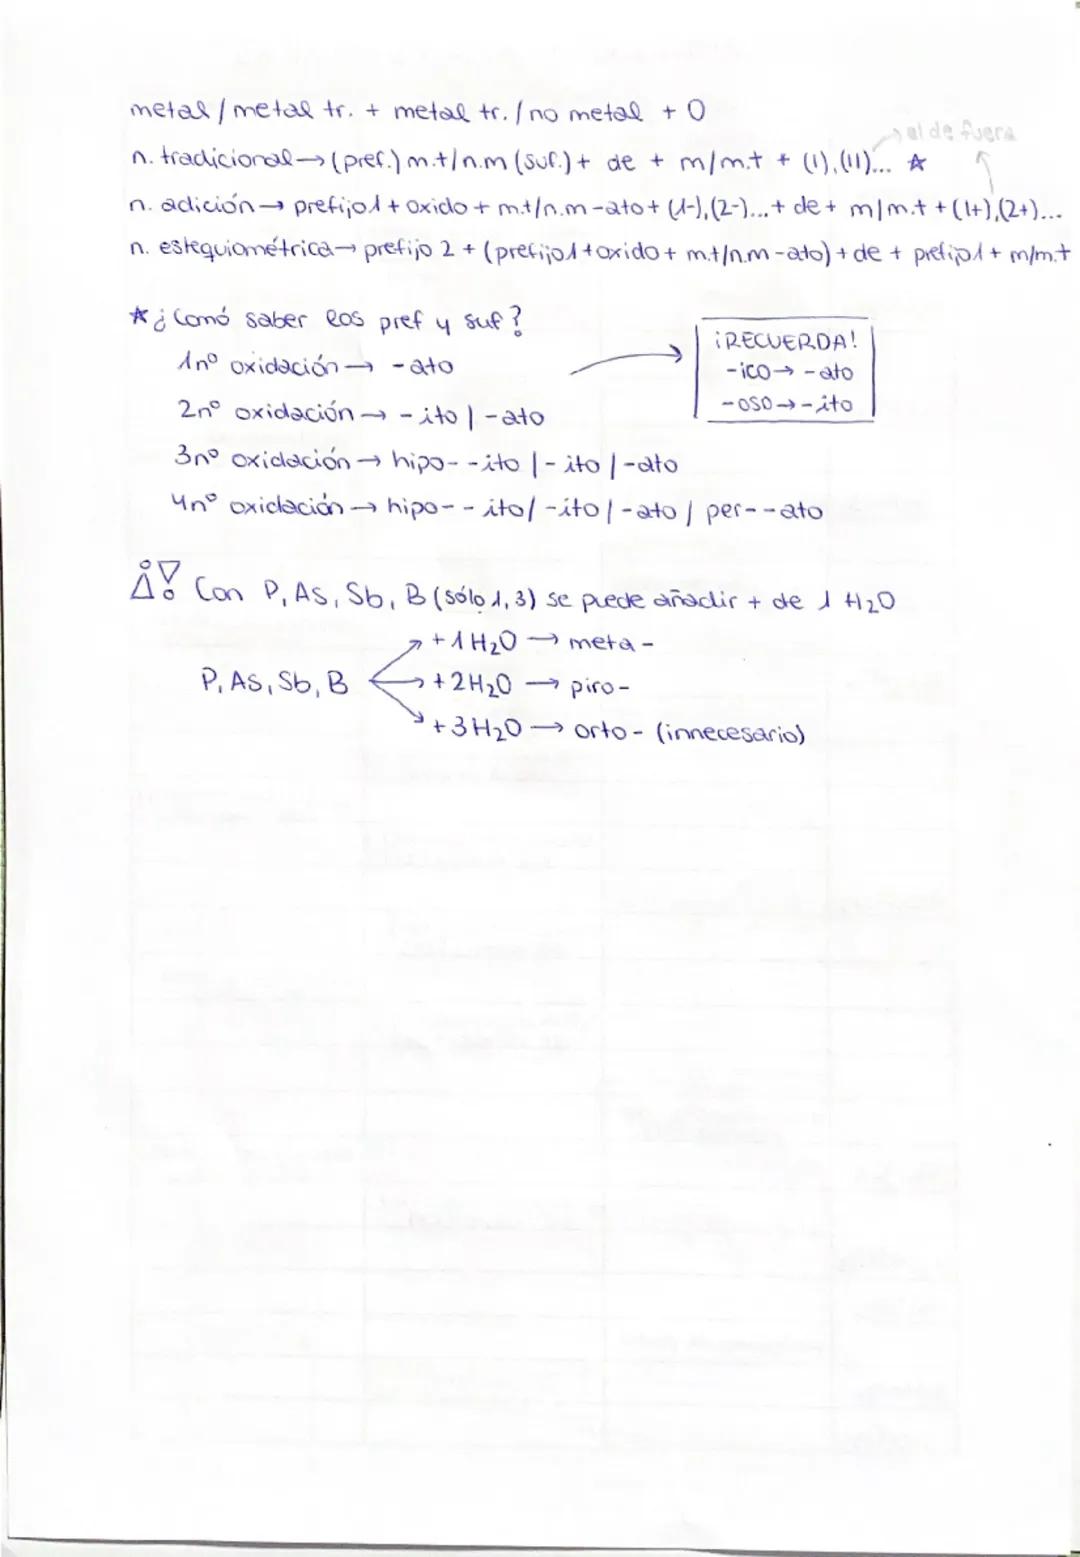 metal/metal tr. + metal tr./no metal + O
al de fuera
n. tradicional → (pref.) m.t/n.m (suf.) + de + m/m.t + (I),(II)... ☆
n. adición → prefijo1 + oxido + m.t/n.m -ato + (1-),(2-)...+ de + m/m.t + (1+),(2+)...
n. estequiométrica → prefijo 2 + (prefijo1 + oxido + m.t/n.m -ato) + de + prefijo1 + m/m.t
☆ ¿Comó saber los pref y suf?
1 nº oxidación → -ato
2 nº oxidación → -ito | -ato
3 nº oxidación → hipo- -ito | -ito | -ato
4 nº oxidación → hipo- -ito/ -ito | -ato | per- -ato
¡RECUERDA!
-ico → -ato
-oso → -ito
¡! Con P, As, Sb, B (sólo 1, 3) se puede añadir + de 1 H₂O
P, As, Sb, B
+ 1 H₂O → meta -
+ 2 H₂O → piro -
+ 3 H₂O → orto - (innecesario)